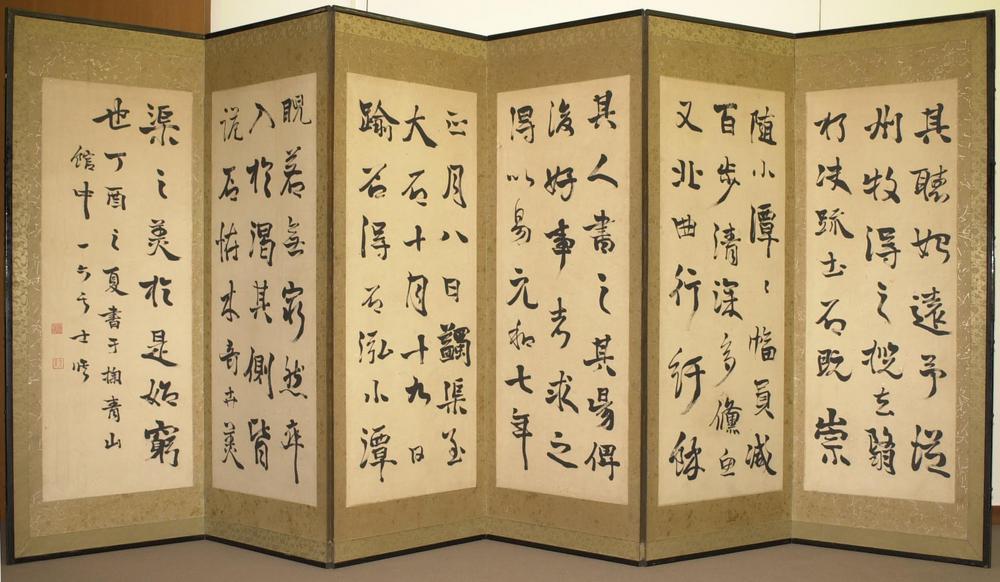 其聽始遠予從
州牧得之攬去翳
朽決疏土石既崇
墮小潭々幅員減
百步清深多鯈魚
又北曲行紆餘
其人書之其陽俾
後好事者求之
得以易元和七年
正月八日蠲渠至
大石十月十九日
踰石得石泓小潭
睨若無窮然卒
入於渴其側皆
詭石怪木奇卉美
渠之美於是始窮
也丁酉之夏書于掬青山
館中一六居士修